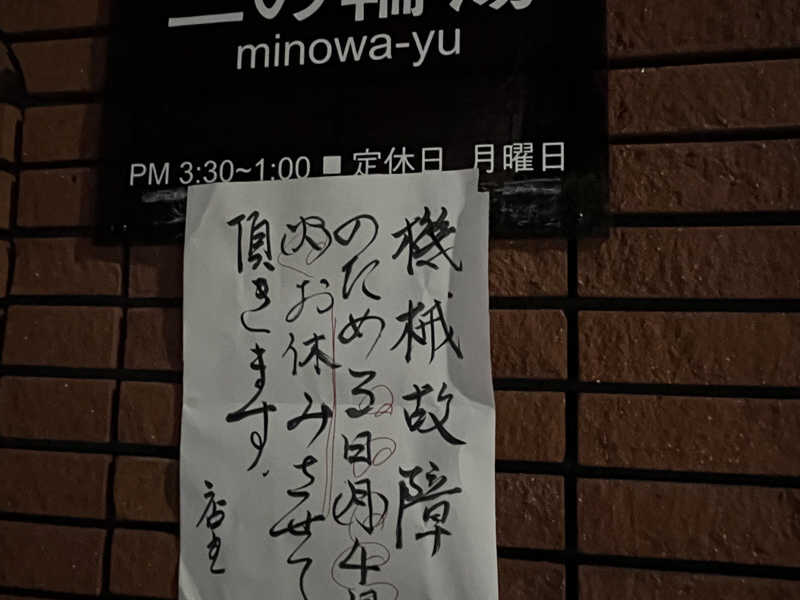 minowa-yu
PM 3:30~1:00 ■ 定休日 月曜日
機械故障
のため3日月4日
火お休みさせて
頂きます
店主